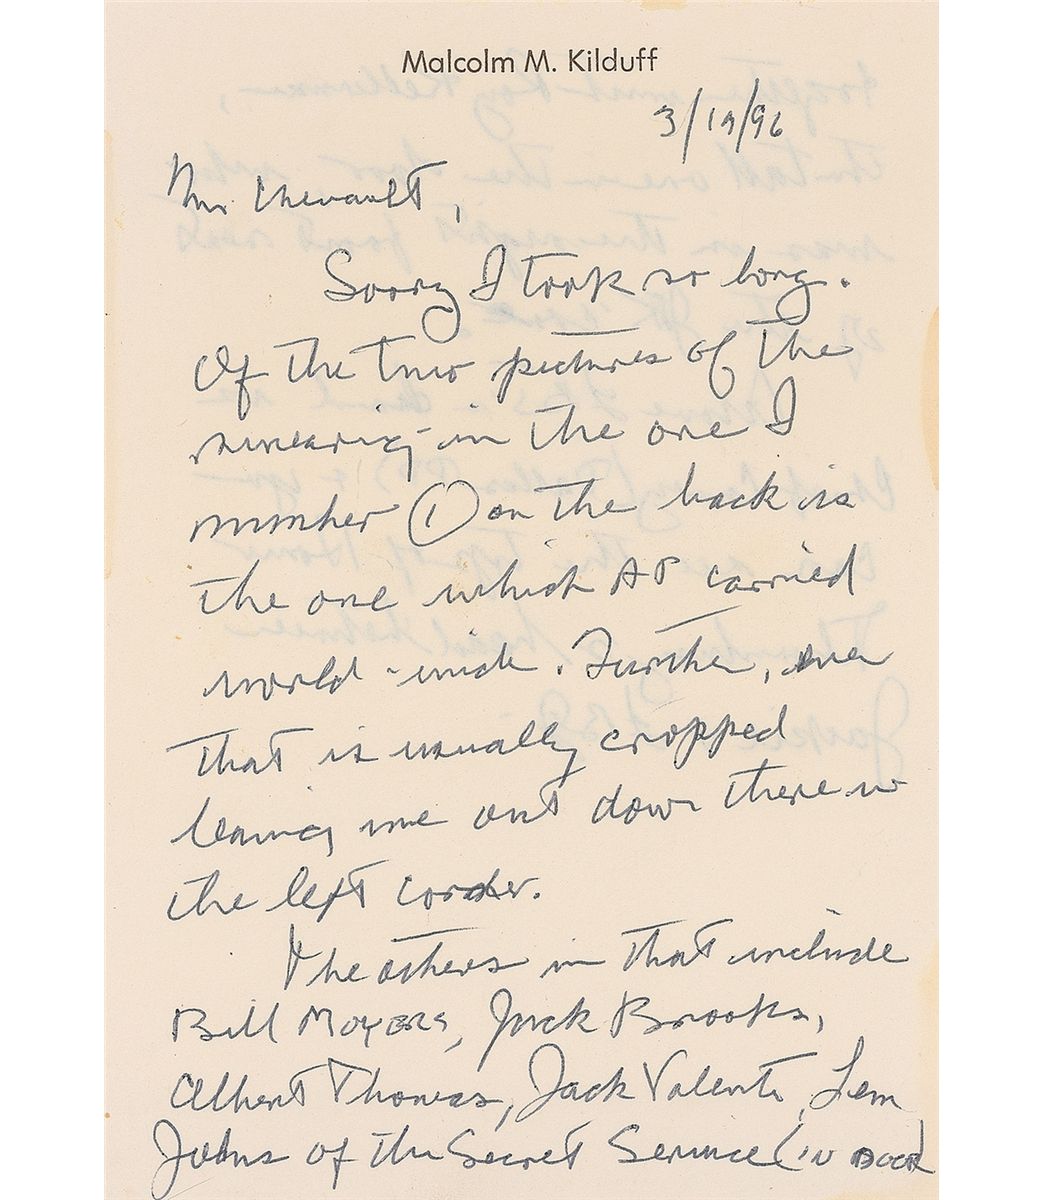 Malcolm M. Kilduff
3/19/96
Mr. Chenault,
Sorry I took so long.
Of the two pictures of the
swearing-in the one I
number (1) on the back is
the one which AP carried
world-wide. Further, even
that is usually cropped
leaving me out down there in
the left corner.
The others in that include
Bill Moyers, Jack Brooks,
Albert Thomas, Jack Valenti, Lem
Johns of the Secret Service (in door